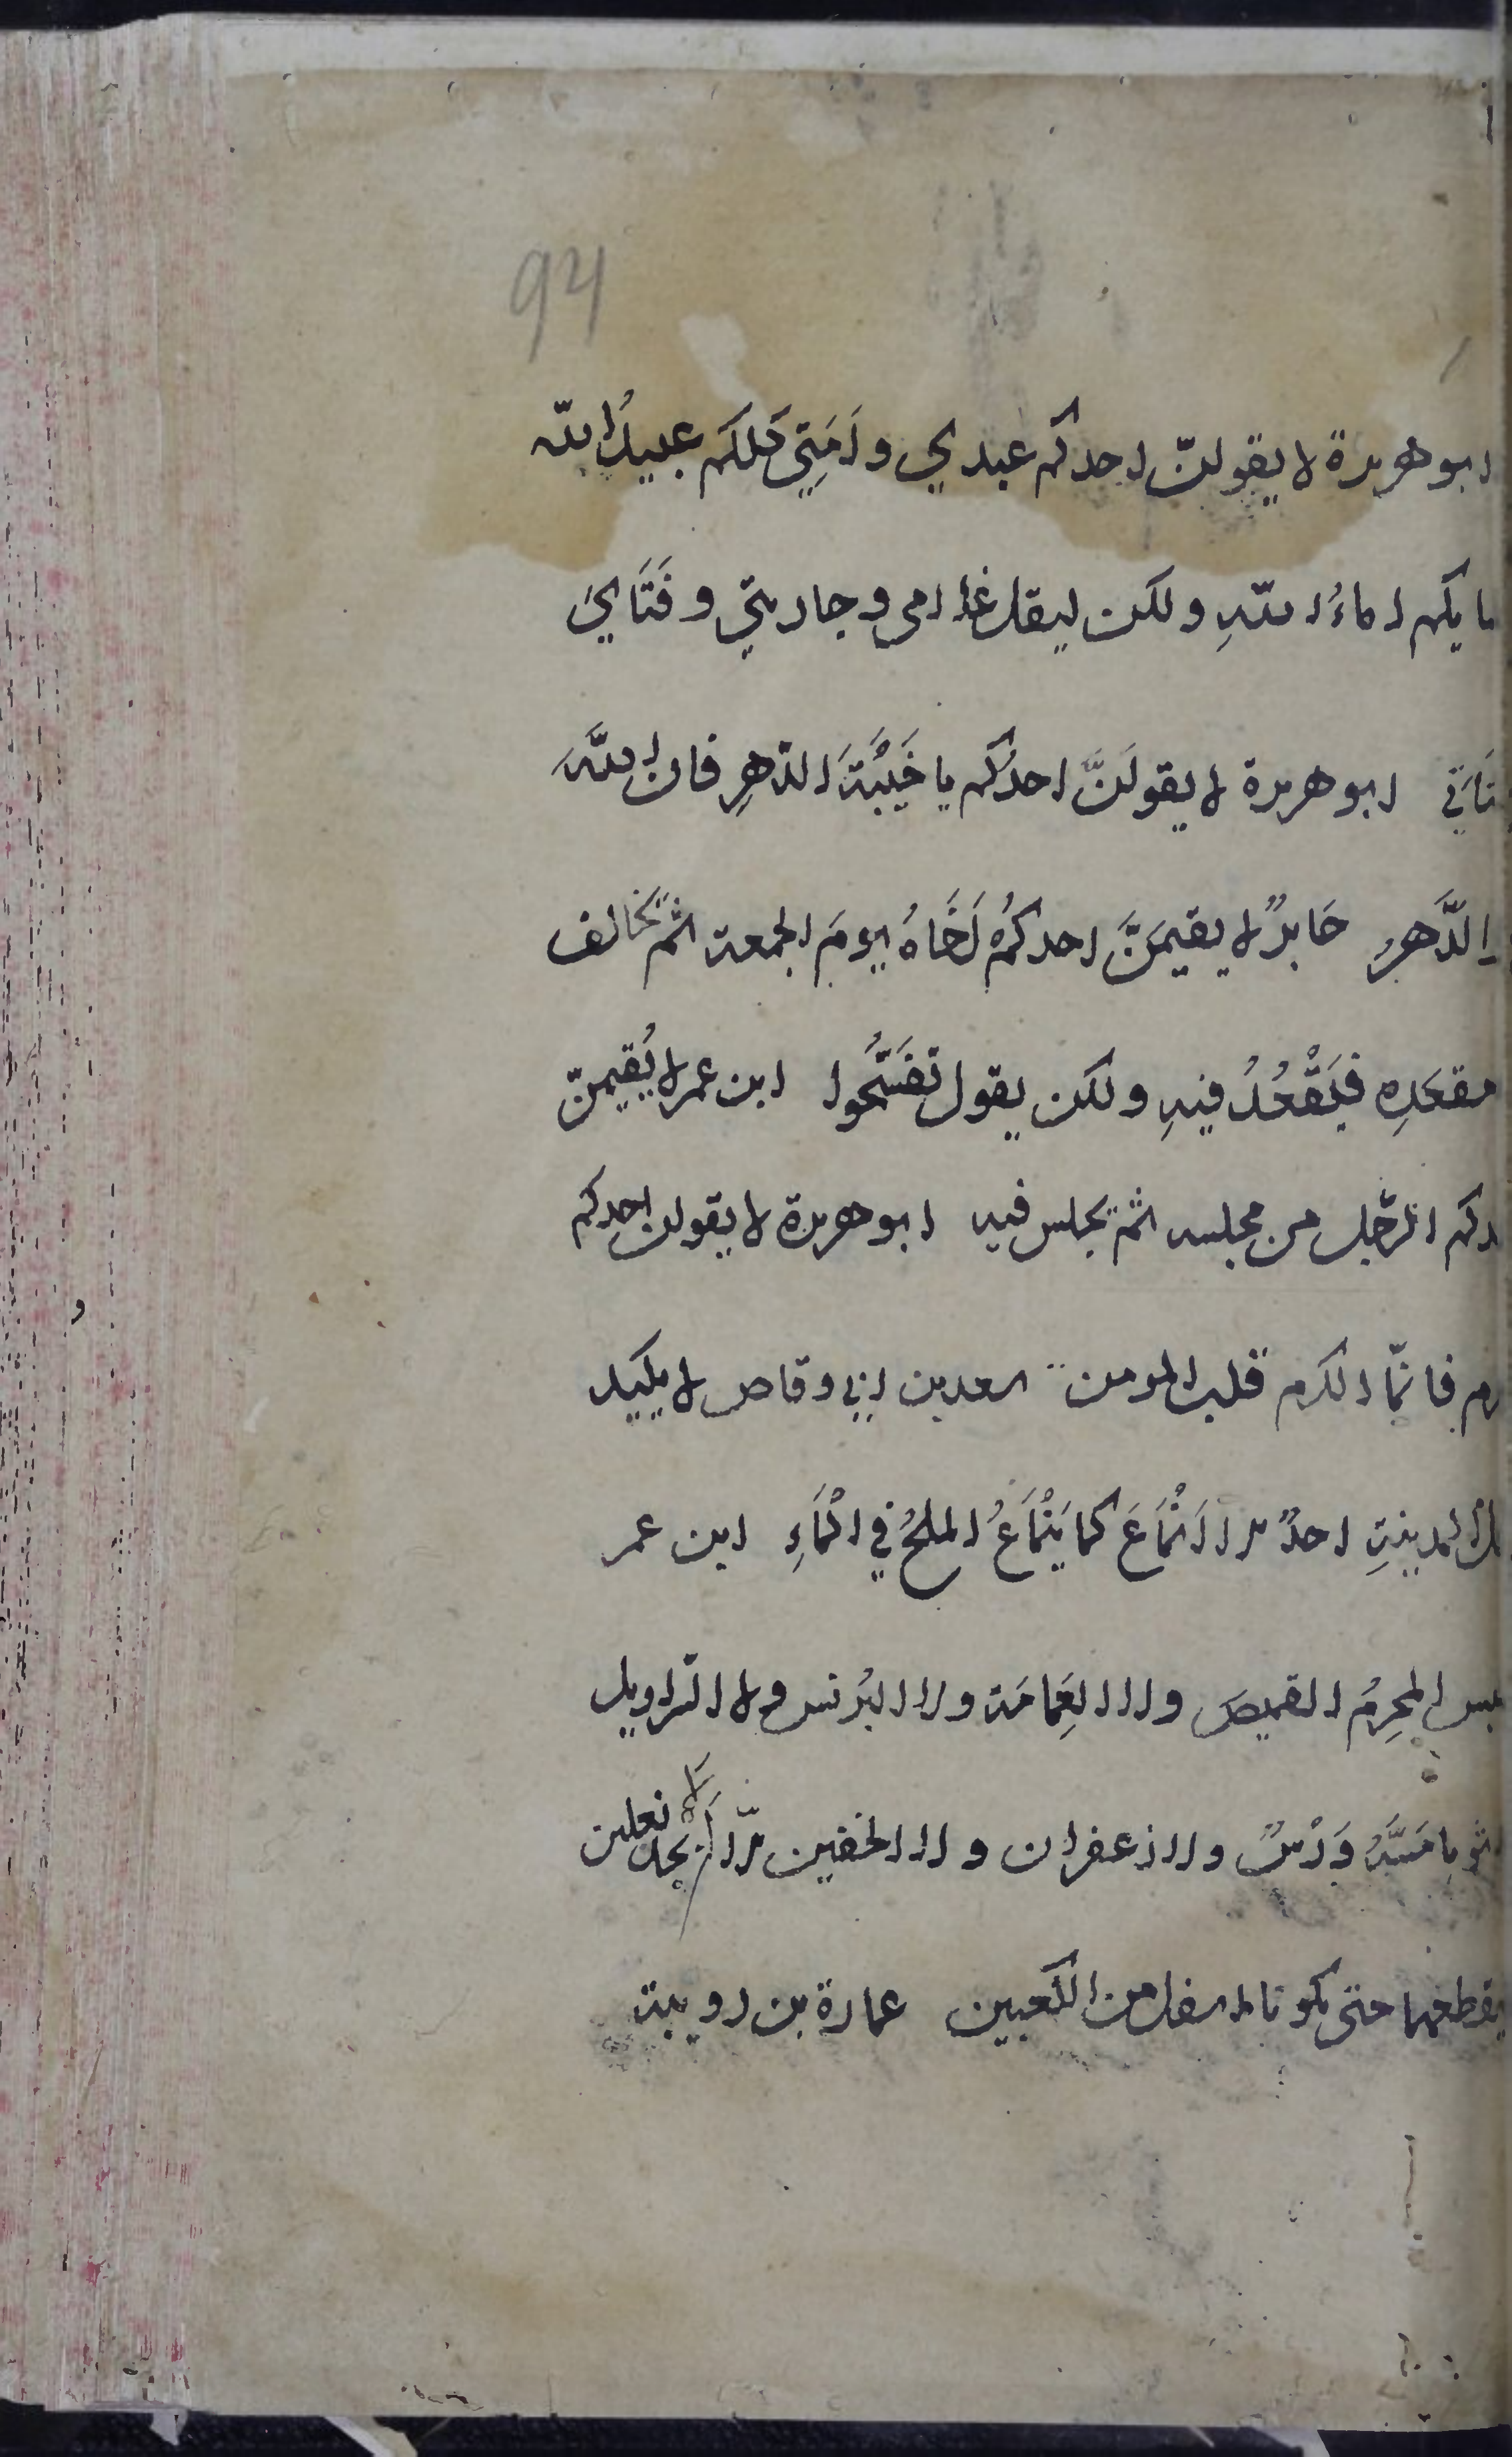 94
ابو هريرة لا يقولنّ احدكم عبدي وأَمَتِي كلكم عبيدُ الله
مايكم اماءُ اللهِ ولكن ليقل غلامى وجاريتي وفَتَايَ
تَاتي ابو هريرة لا يقولَنَّ احدُكم يا خَيْبَةَ الدّهرِ فان اللهَ
الدَّهرُ جَابرٌ لا يقيمَنَّ احدكُم أَخَاهُ يومَ الجمعة ثمّ يخالف
مقعَدِه فَيَقْعُدُ فيهِ ولكن يقول تفسَّحُوا ابن عمر لا يُقيمنّ
دكم الرّجل من مجلسه ثمّ يجلس فيه ابو هريرة لا يقولن احدكم
رم فانّما الكرم قلب المومن سعد بن ابي وقاص لا يكيد
المدينةِ احدٌ الا انْمَاعَ كما يَنْمَاعُ الملحُ في المَاءِ ابن عمر
بس المحرِمُ القميصَ ولا العِمَامَة ولا البُرنس ولا السّراويل
ثوبا مَسَّهُ وَرْسٌ ولا زعفران ولا الخفين الّا ان لا يجد نعلين
يقطعهما حتى يكونا اسفل من الكعبين عمارة بن رويبة